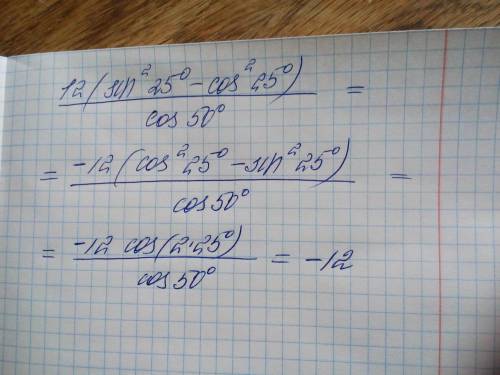 12(sin²25°-cos²25°)/cos50° =
= -12(cos²25°-sin²25°)/cos50° =
= -12 cos(2·25°)/cos50° = -12